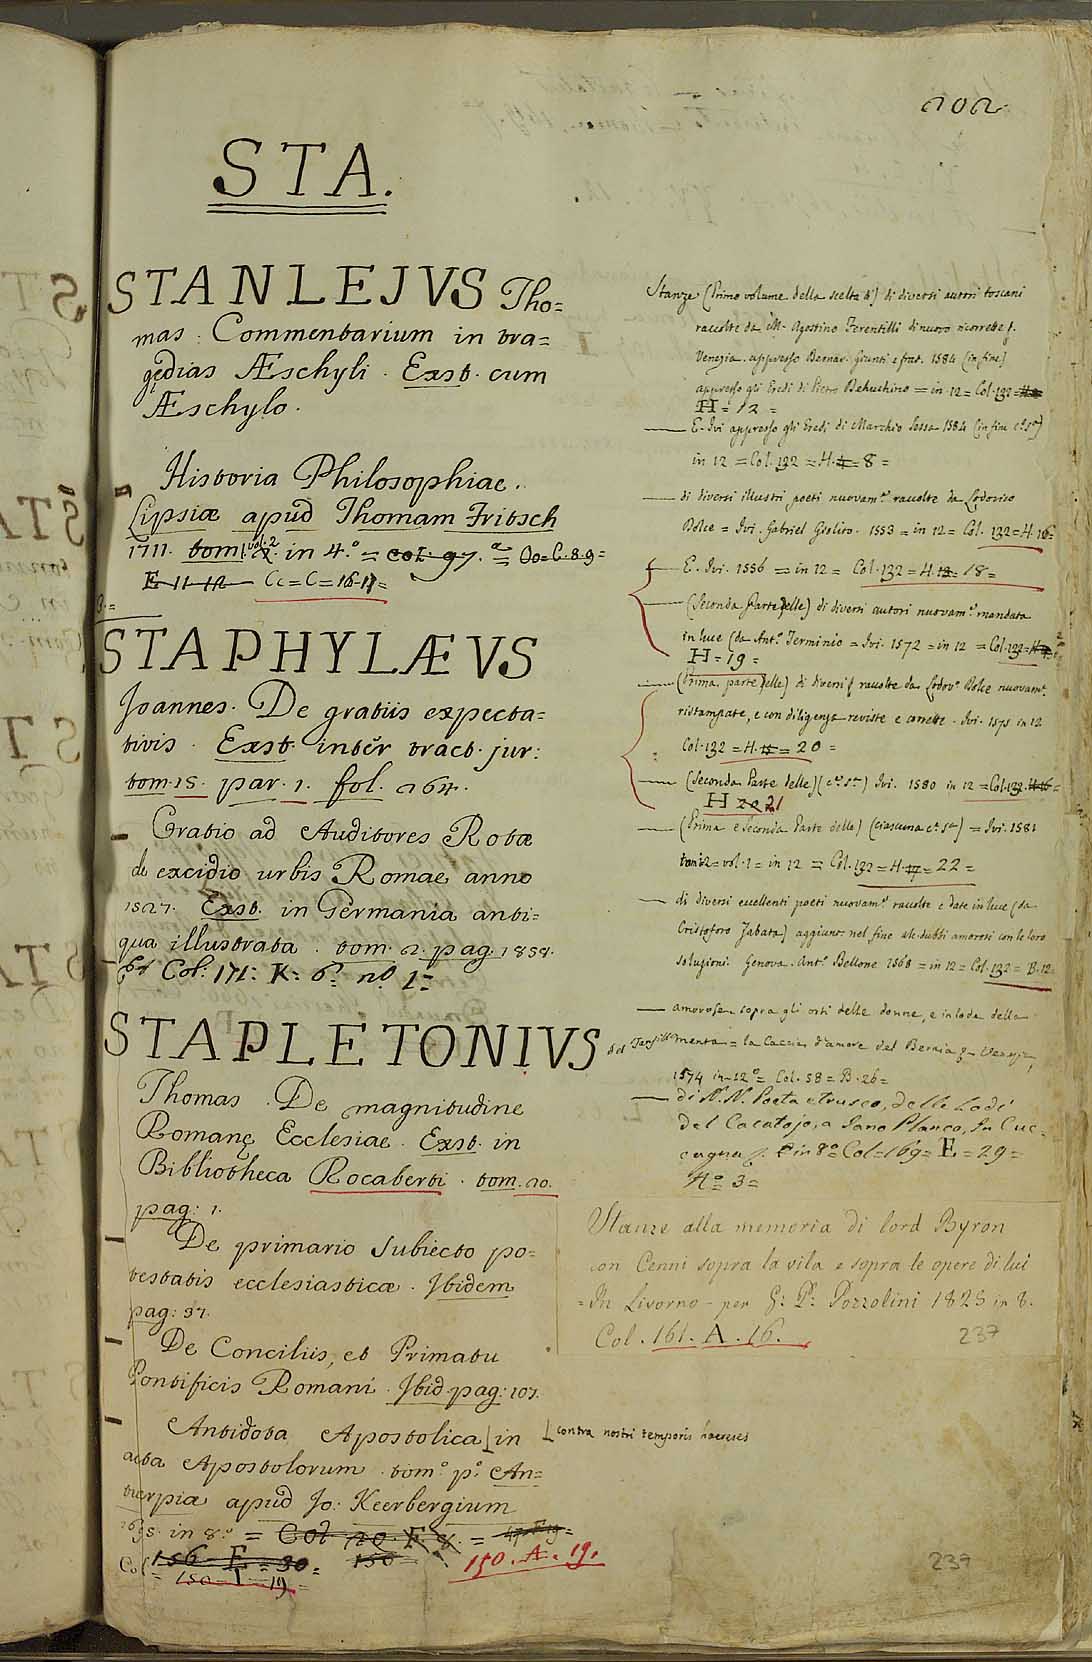 202
STA.
STANLEJVS Tho=
mas. Commentarium in tra=
gędias Æschyli. Exst. cum
Æschylo.
Historia Philosophiae.
Lipsiæ apud Thomam Fritsch
1711. tom. vol. 2 in 4.º = col. 97. = Oo = C. 8. 9 =
E 11 12 Cc = C = 16-17 =
STAPHYLÆVS
Joannes. De gratiis expecta=
tivis. Exst. inter tract. jur:
tom. 15. par. 1. fol. 264.
Oratio ad Auditores Rotæ
de excidio urbis Romae anno
1527. Exst. in Germania anti=
qua illustrata. tom. 2. pag. 1858.
Col: 171: K: 6: nº 1=
STAPLETONIVS
Thomas. De magnitudine
Romanę Ecclesiae. Exst. in
Bibliotheca Rocaberti. tom. 20.
pag: 1.
De primario subiecto po=
testatis ecclesiasticæ. Ibidem
pag: 37.
De Conciliis, et Primatu
Pontificis Romani. Ibid. pag: 107.
Antidota Apostolica in
contra nostri temporis haereses
acta Apostolorum. tom.º p.º An=
tuerpiæ apud Jo: Keerbergium
in 8.º = Col 20. F. 8. = 47 F 19 =
Col 156. E = 30 = 150 150. A. 19.
150 I 19 =
Stanze (Primo volume della scelta di) di diversi autori toscani
raccolte da M. Agostino Ferentilli di nuovo ricorrette &.
Venezia. appresso Bernar. Giunti e frat. 1584 (in fine)
appresso gli Eredi di Pietro Dehuchino = in 12 = Col. 132 =
H = 12 =
E. Ivi appresso gli Eredi di Marchio Sessa 1584 (in fine cº. sª)
in 12 = Col. 132 = H. 4 = 8 =
di diversi illustri poeti nuovam.e raccolte da Lodovico
Dolce = Ivi. Gabriel Giolito. 1553 = in 12 = Col. 132 = H. 16 =
E. Ivi. 1556 = in 12 = Col. 132 = H. 13 = 18 =
(Seconda Parte delle) di diversi autori nuovam.e mandata
in luce (da Ant.º Terminio = Ivi. 1572 = in 12 = Col. 132 =
H = 19 =
(Prima parte delle) di diversi & racolte da Lodov.º Dolce nuovam.e
ristampate, e con diligenza reviste e corrette. Ivi. 1575 in 12
Col. 132 = H. 15 = 20 =
(Seconda Parte delle) (cº. sª) Ivi. 1580 in 12 = Col. 132. H. 16 =
H 20 21
(Prima e Seconda Parte delle) (ciascuna cº. sª) = Ivi. 1581
tomi 2 = vol. 1 = in 12 = Col. 132 = H. 17 = 22 =
di diversi eccellenti poeti nuovam.e racolte e date in luce (da
Cristoforo Zabata) aggiunt. nel fine alc. dubbi amorosi con le loro
soluzioni. Genova. Ant.º Bellone 1568 = in 12 = Col. 132 = B. 12 =
amorose sopra gli orti delle donne, e in lode della
del Tansillo menta = la Caccia d'amore del Bernia &. Venezia,
1574 in 12º = Col. 58 = B. 26 =
di N. N. Poeta etrusco, delle Lodi
del Cacatojo, a Jano Planco, In Cuc=
cagna &. in 8º = Col = 169 = E = 29 =
Nº 3 =
Stanze alla memoria di lord Byron
con Cenni sopra la vita e sopra le opere di lui
= In Livorno - per G: P: Pozzolini 1825 in 8.
Col. 161. A. 16.
237
237